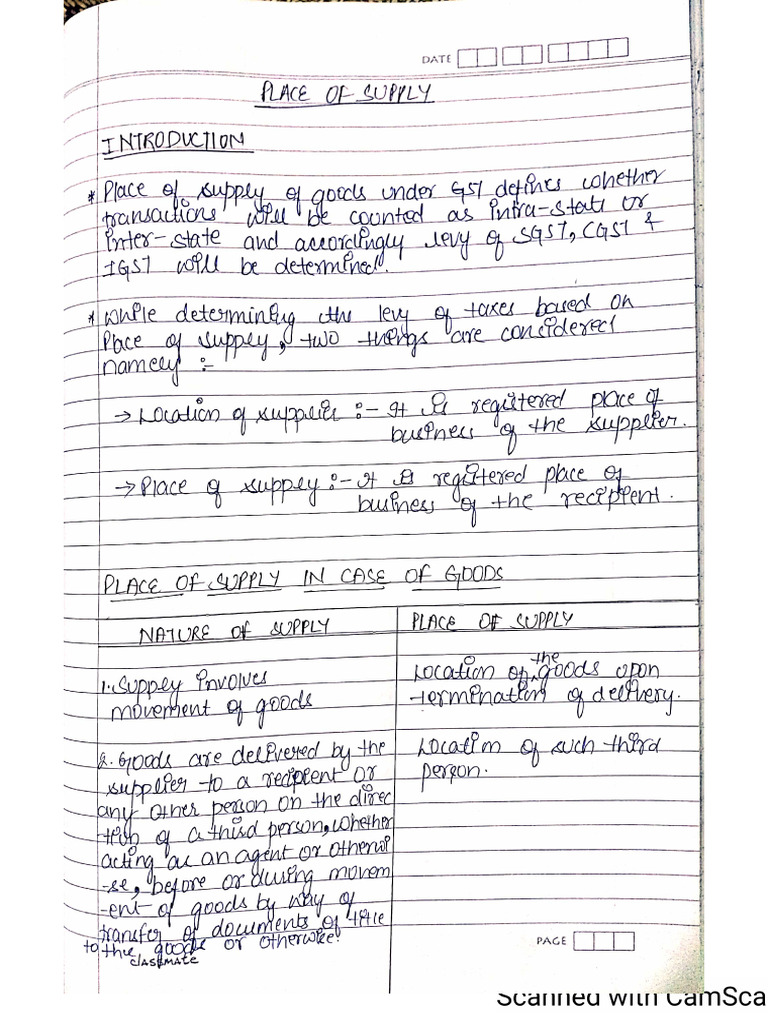 DATE
PLACE OF SUPPLY
INTRODUCTION
* Place of supply of goods under GST defines whether
transactions will be counted as intra-state or
inter-state and accordingly levy of SGST, CGST &
IGST will be determined.
* While determining the levy of taxes based on
Place of supply, two things are considered
namely :-
→ Location of supplier :- It is registered place of
business of the supplier.
→ Place of supply :- It is registered place of
business of the recipient.
PLACE OF SUPPLY IN CASE OF GOODS
NATURE OF SUPPLY
1. Supply involves
movement of goods
2. Goods are delivered by the
supplier to a recipient or
any other person on the direc
tion of a third person, whether
acting as an agent or otherwi
-se, before or during movem
-ent of goods by way of
transfer of documents of title
to the goods or otherwise.
PLACE OF SUPPLY
Location of the goods upon
termination of delivery.
Location of such third
person.
classmate
PAGE
Scanned with CamSca